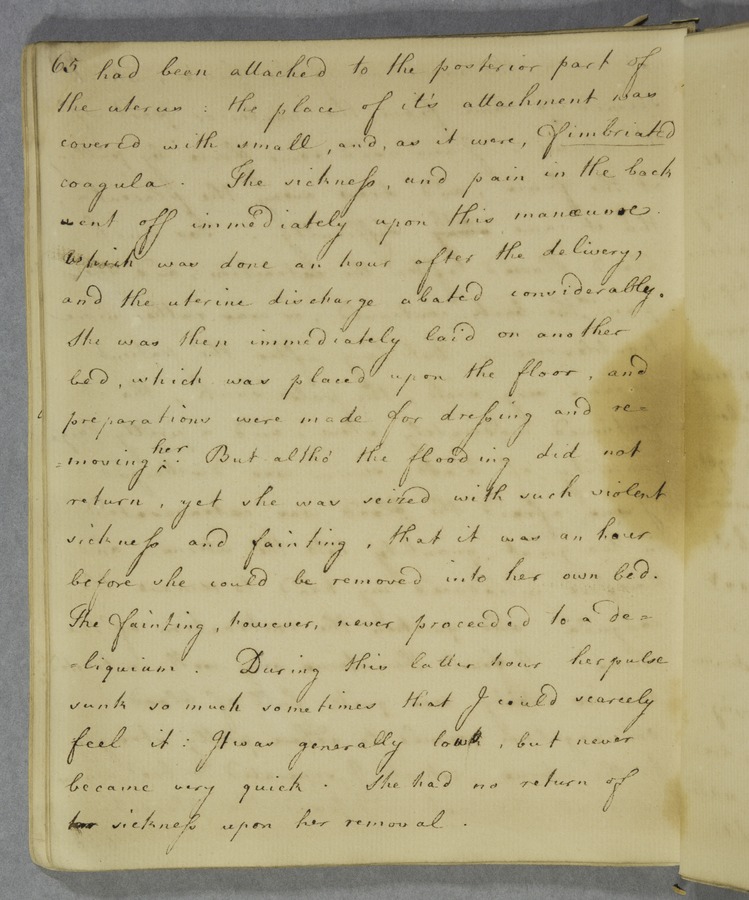 65 had been attached to the posterior part of
the uterus : the place of it's attachment was
covered with small, and, as it were, fimbriated
coagula. The sickness, and pain in the back
went off immediately upon this manœuvre.
which was done an hour after the delivery,
and the uterine discharge abated considerably.
She was then immediately laid on another
bed, which was placed upon the floor, and
preparations were made for dressing and re=
=moving her. But altho' the flooding did not
return, yet she was seized with such violent
sickness and fainting, that it was an hour
before she could be removed into her own bed.
The fainting, however, never proceeded to a de=
=liquium. During this latter hour her pulse
sunk so much sometimes that I could scarcely
feel it: It was generally , but never
became very quick. She had no return of
sickness upon her removal.